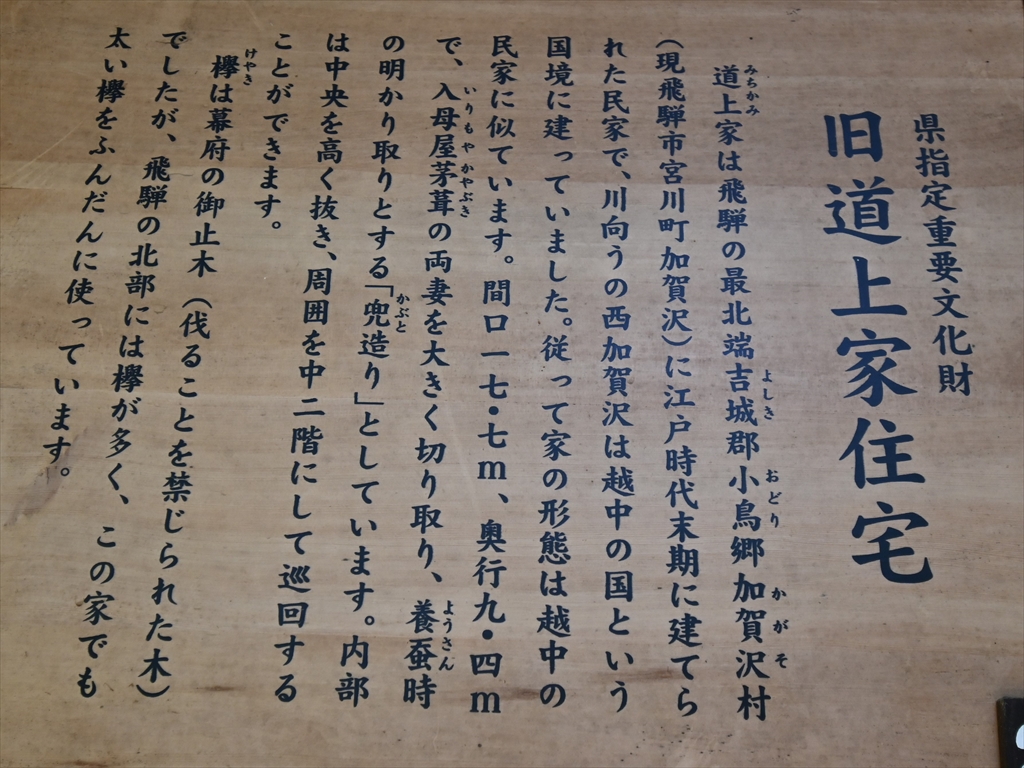 県指定重要文化財
旧道上家住宅
道上家は飛騨の最北端吉城郡小鳥郷加賀沢村
(現飛騨市宮川町加賀沢)に江戸時代末期に建てら
れた民家で、川向うの西加賀沢は越中の国という
国境に建っていました。従って家の形態は越中の
民家に似ています。間口一七・七m、奥行九・四m
で、入母屋茅葺の両妻を大きく切り取り、養蚕時
の明かり取りとする「兜造り」としています。内部
は中央を高く抜き、周囲を中二階にして巡回する
ことができます。
欅は幕府の御止木(伐ることを禁じられた木)
でしたが、飛騨の北部には欅が多く、この家でも
太い欅をふんだんに使っています。
みちかみ
よしき
おどり
かがそ
いりもやかやぶき
ようさん
かぶと
けやき